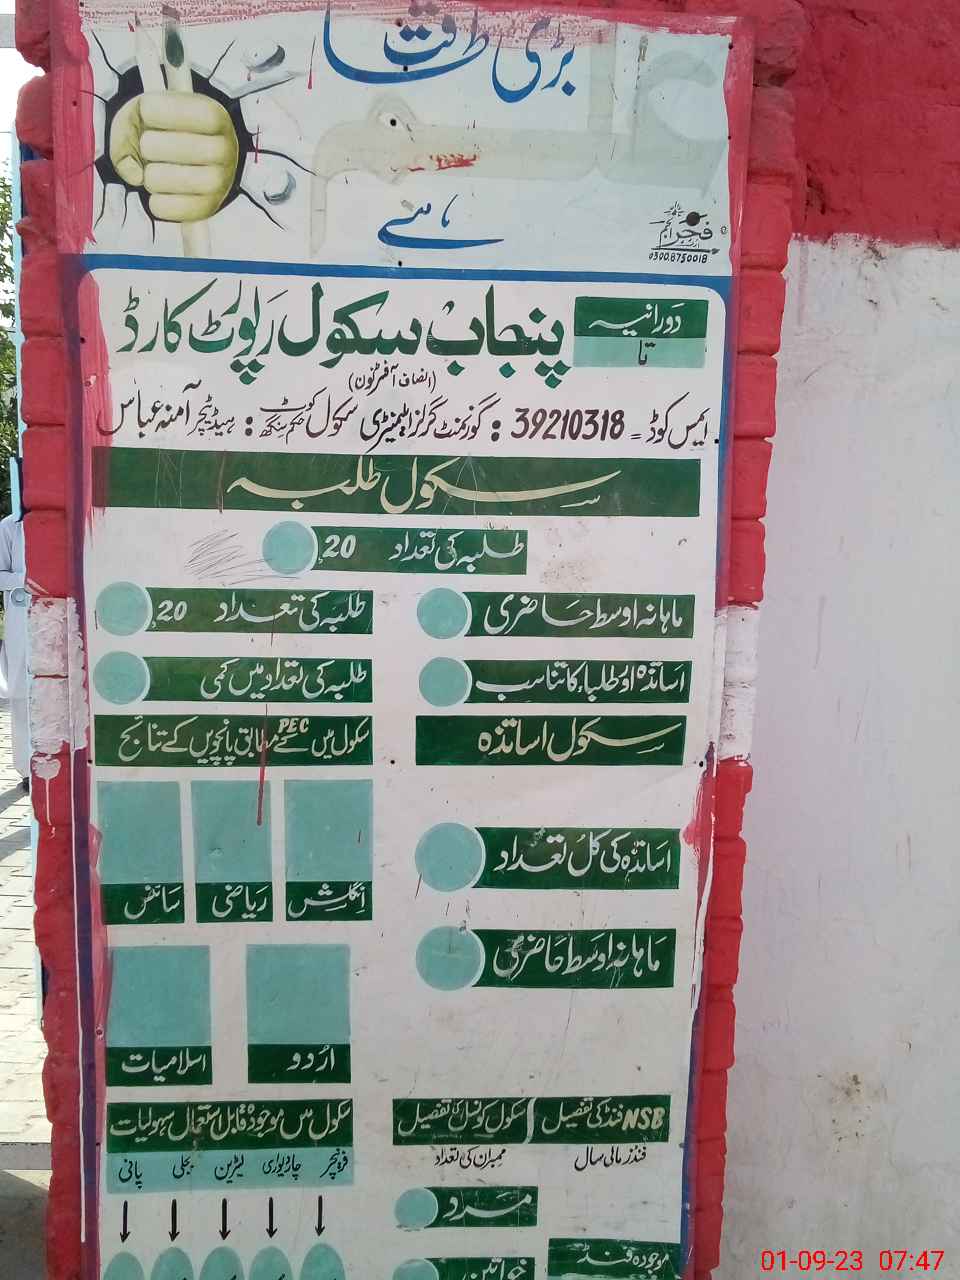 بڑی طاقت
علم
ہے
فجر
0300.8750018
پنجاب سکول رپورٹ کارڈ
دورانیہ
تا
(انصاف آفٹرنون)
ایمس کوڈ = 39210318 : گورنمنٹ گرلز ایلیمنٹری سکول کوٹ حکم سنگھ : ہیڈ ٹیچر آمنہ عباس
سکول طلبہ
طلبہ کی تعداد 20
ماہانہ اوسط حاضری
طلبہ کی تعداد 20
اساتذہ اور طلباء کا تناسب
طلبہ کی تعداد میں کمی
سکول اساتذہ
سکول میں PEC کے مطابق پانچویں کے نتائج
انگلش ریاضی سائنس
اساتذہ کی کل تعداد
ماہانہ اوسط حاضری
اردو اسلامیات
NSB فنڈ کی تفصیل
سکول کونسل کی تفصیل
سکول میں موجودہ قابل استعمال سہولیات
فنڈز مالی سال
ممبران کی تعداد
فرنیچر چاردیواری لیٹرین بجلی پانی
مرد
موجودہ فنڈ
خواتین
01-09-23 07:47